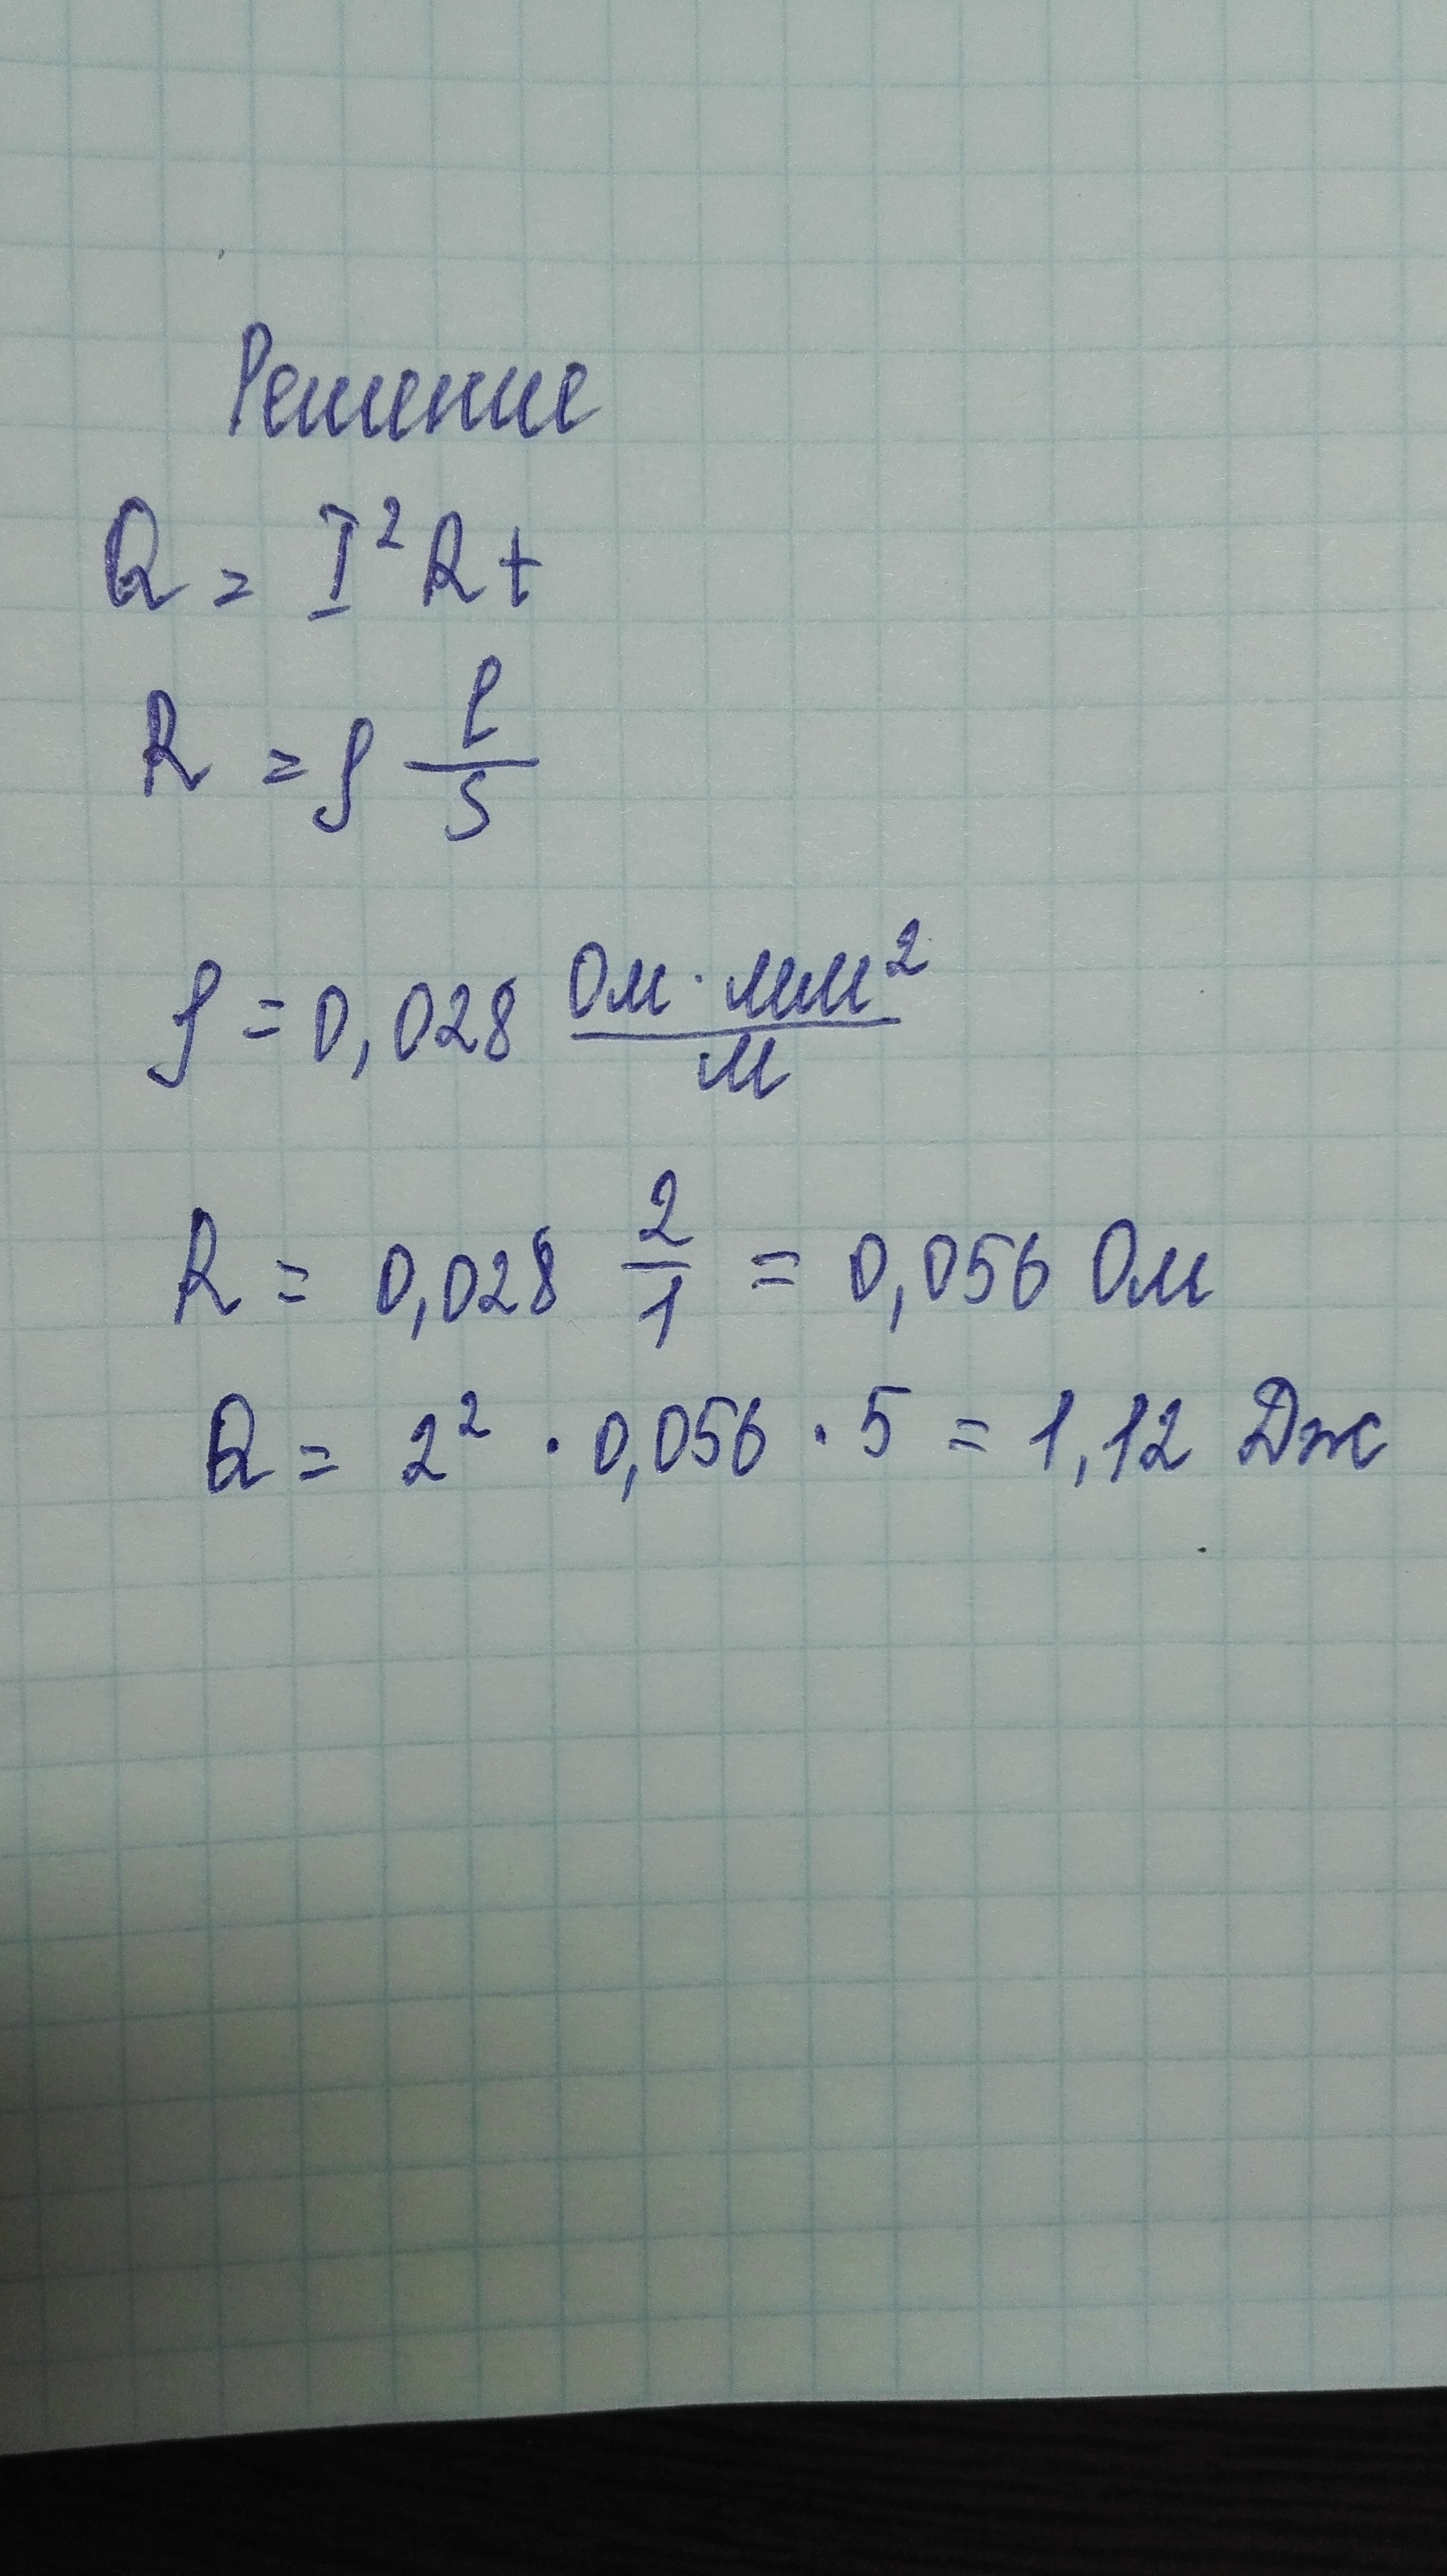 Решение
Q = I² R t
R = ρ l/S
ρ = 0,028 Ом · мм²/м
R = 0,028 2/1 = 0,056 Ом
Q = 2² · 0,056 · 5 = 1,12 Дж